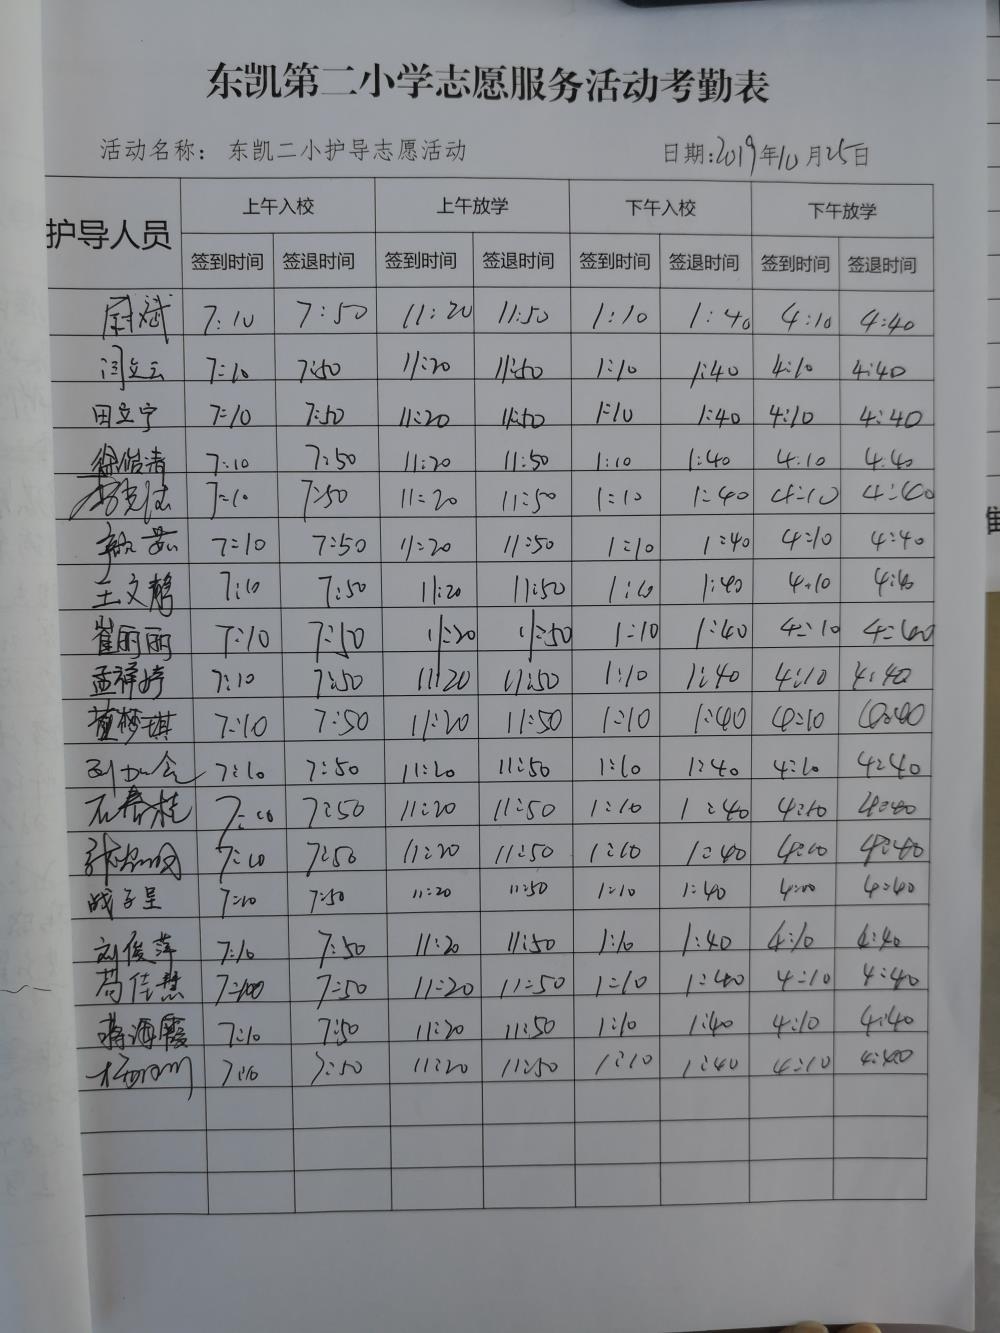 东凯第二小学志愿服务活动考勤表
活动名称： 东凯二小护导志愿活动 日期:2019年10月25日
护导人员 上午入校 上午放学 下午入校 下午放学
签到时间 签退时间 签到时间 签退时间 签到时间 签退时间 签到时间 签退时间
尉斌 7:10 7:50 11:20 11:50 1:10 1:40 4:10 4:40
闫立云 7:10 7:50 11:20 11:50 1:10 1:40 4:10 4:40
田立宁 7:10 7:50 11:20 11:50 1:10 1:40 4:10 4:40
徐皓清 7:10 7:50 11:20 11:50 1:10 1:40 4:10 4:40
7:10 7:50 11:20 11:50 1:10 1:40 4:10 4:40
7:10 7:50 11:20 11:50 1:10 1:40 4:10 4:40
王文静 7:10 7:50 11:20 11:50 1:10 1:40 4:10 4:40
崔丽丽 7:10 7:50 11:20 11:50 1:10 1:40 4:10 4:40
孟祥婷 7:10 7:50 11:20 11:50 1:10 1:40 4:10 4:40
董梦琪 7:10 7:50 11:20 11:50 1:10 1:40 4:10 4:40
7:10 7:50 11:20 11:50 1:10 1:40 4:10 4:40
石春桂 7:10 7:50 11:20 11:50 1:10 1:40 4:10 4:40
7:10 7:50 11:20 11:50 1:10 1:40 4:10 4:40
战子呈 7:10 7:50 11:20 11:50 1:10 1:40 4:10 4:40
刘俊萍 7:10 7:50 11:20 11:50 1:10 1:40 4:10 4:40
苟佳慧 7:10 7:50 11:20 11:50 1:10 1:40 4:10 4:40
蒋海霞 7:10 7:50 11:20 11:50 1:10 1:40 4:10 4:40
7:10 7:50 11:20 11:50 1:10 1:40 4:10 4:40